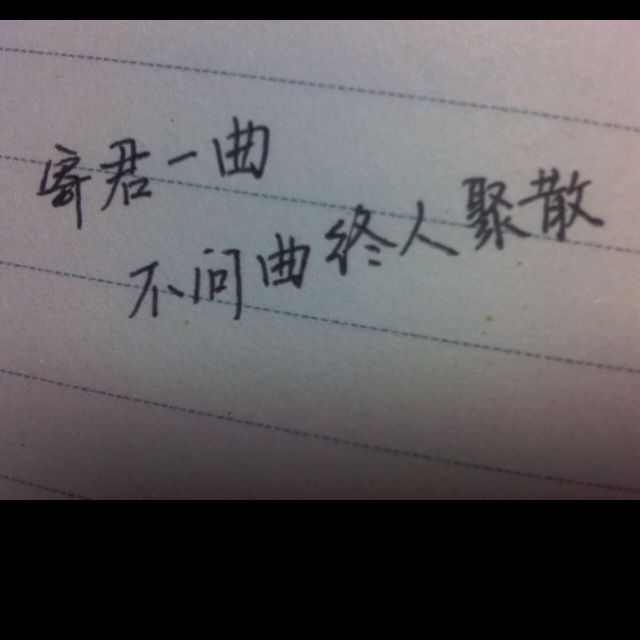 寄君一曲
不问曲终人聚散